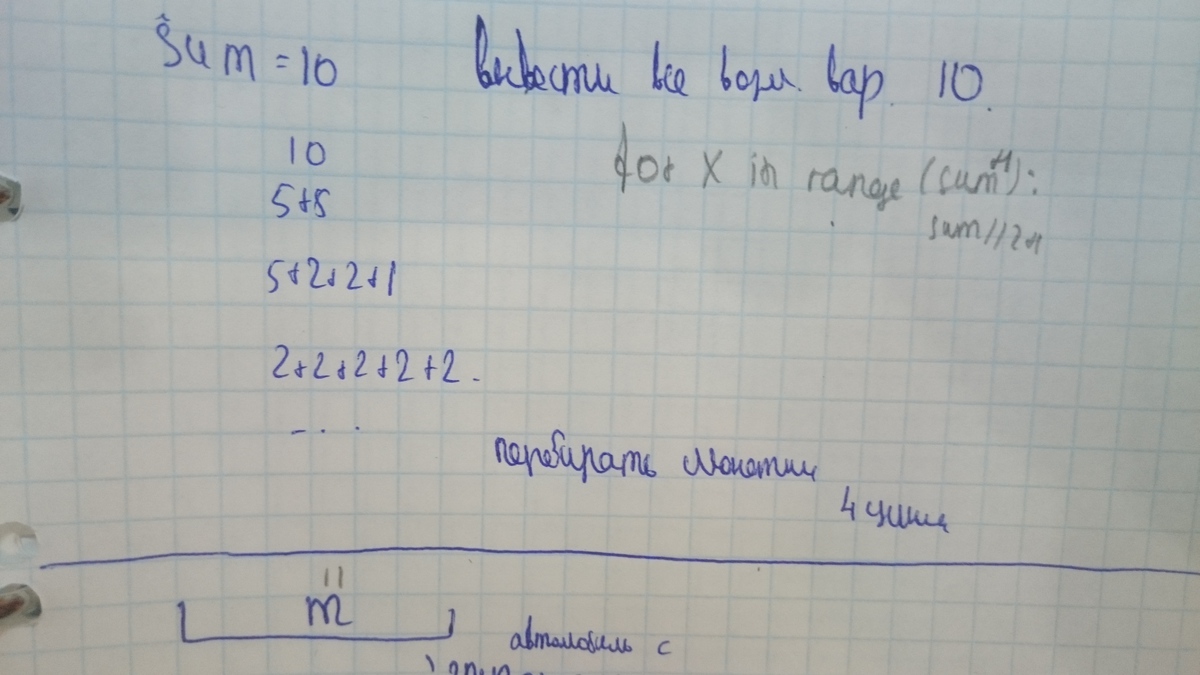 Sum = 10 вывести все возм. вар. 10.
10
for X in range (sum+1):
5+5
sum//2+1
5+2+2+1
2+2+2+2+2.
...
перебирать монетки
4 цикла
11
m
автомобиль с